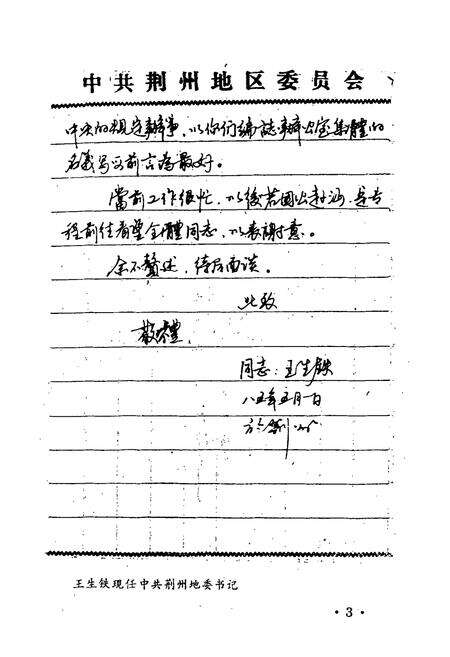 中共荆州地区委员会
中央的规定辦事，以你们编誌辦公室集體的
名義写以前言為最好。
當前工作很忙，以後若因公赴沔，定专
程前往看望全體同志，以表謝意。
余不贅述，待后面谈。
此致
敬禮
同志：王生铁
八五年五月一日
於荆州
王生铁现任中共荆州地委书记
·3·